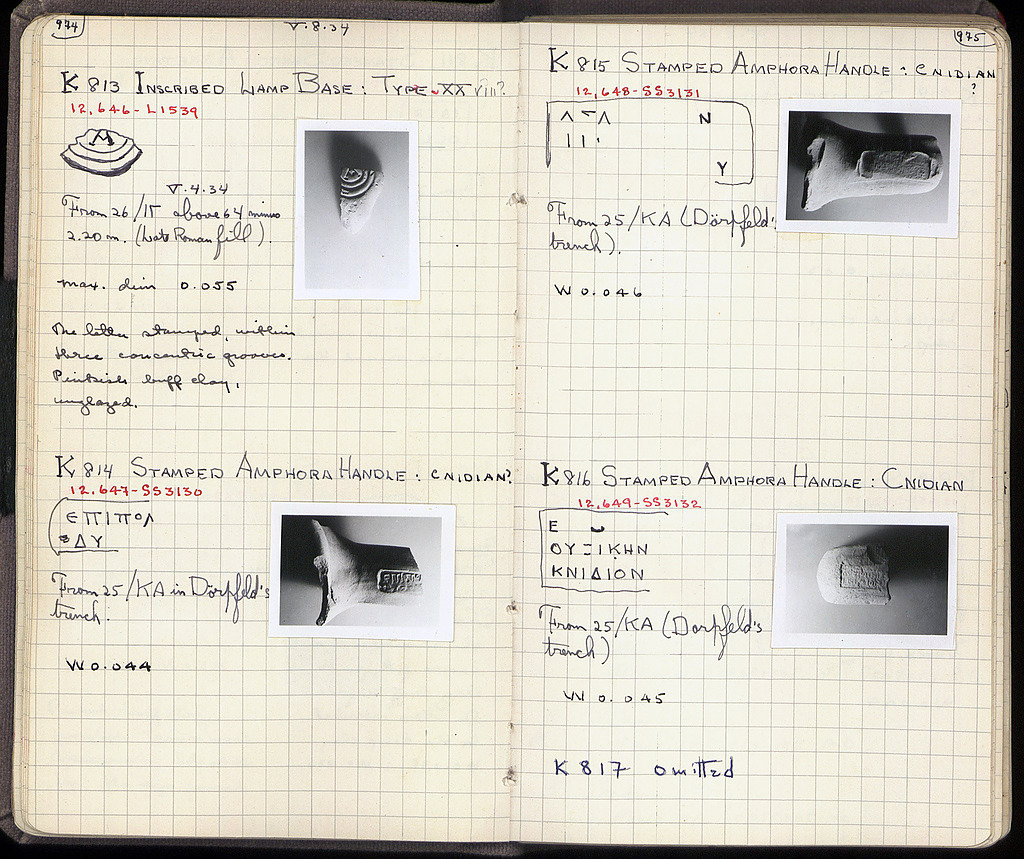 974
V.8.34
K 813 INSCRIBED LAMP BASE: TYPE XXVIII?
12,646-L1539
M
V.4.34
From 26/ΙΓ above 64 minus
2.20 m. (Late Roman fill).
max. dim 0.055
The letter stamped, within
three concentric grooves.
Pinkish buff clay,
unglazed.
K 814 STAMPED AMPHORA HANDLE: CNIDIAN?
12,647-SS3130
ЄΠΙΠΟΛ
ΔΥ
From 25/KA in Dörpfeld's
trench.
W 0.044
975
K 815 STAMPED AMPHORA HANDLE: CNIDIAN
?
12,648-SS3131
N
Y
From 25/KA (Dörpfeld's
trench).
W 0.046
K 816 STAMPED AMPHORA HANDLE: CNIDIAN
12,649-SS3132
Ε
ΟΥΞΙΚΗΝ
ΚΝΙΔΙΟΝ
From 25/KA (Dorpfeld's
trench)
W 0.045
K 817 omitted